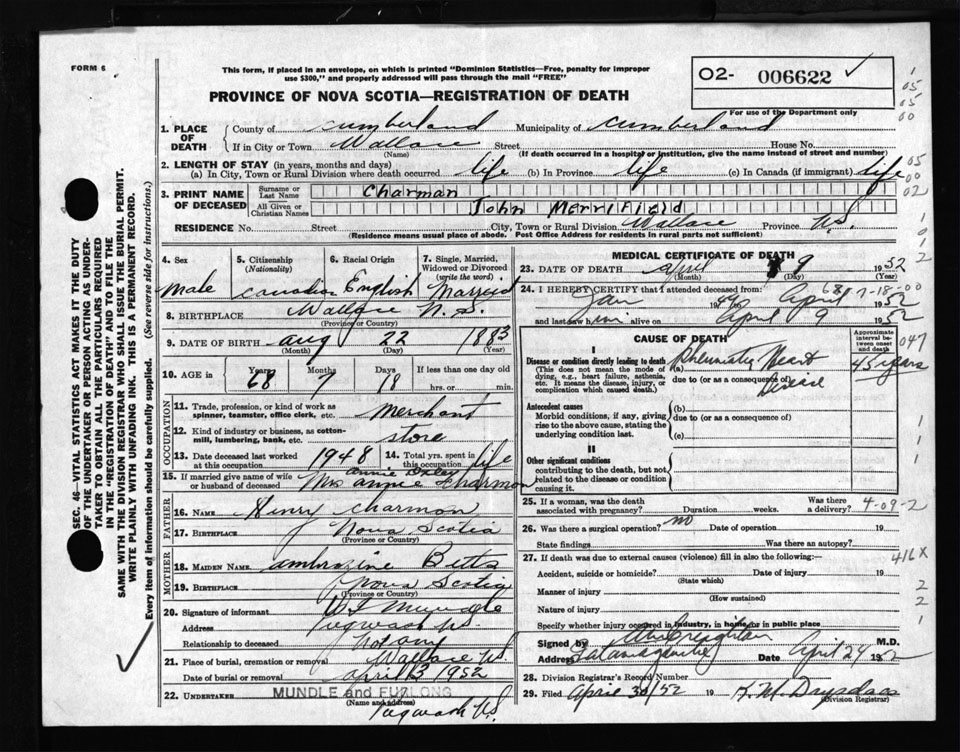 FORM 6
This form, if placed in an envelope, on which is printed "Dominion Statistics—Free, penalty for improper
use $300," and properly addressed will pass through the mail "FREE"
O2- 006622 ✓
For use of the Department only
PROVINCE OF NOVA SCOTIA—REGISTRATION OF DEATH
1. PLACE OF DEATH
County of Cumberland Municipality of Cumberland
If in City or Town Wallace Street House No.
(Name) (If death occurred in a hospital or institution, give the name instead of street and number)
2. LENGTH OF STAY (in years, months and days)
(a) In City, Town or Rural Division where death occurred life (b) In Province life (c) In Canada (if immigrant) life
3. PRINT NAME OF DECEASED
Surname or Last Name Charman
All Given or Christian Names John Merrifield
RESIDENCE No. Street City, Town or Rural Division Wallace Province N.S.
(Residence means usual place of abode. Post Office Address for residents in rural parts not sufficient)
4. Sex male
5. Citizenship (Nationality) Canadian
6. Racial Origin English
7. Single, Married, Widowed or Divorced (write the word) Married
8. BIRTHPLACE Wallace N.S.
(Province or Country)
9. DATE OF BIRTH Aug 22 1883
(Month) (Day) (Year)
10. AGE Years 68 Months 7 Days 18 If less than one day old
hrs. or min.
OCCUPATION
11. Trade, profession, or kind of work as spinner, teamster, office clerk, etc. Merchant
12. Kind of industry or business, as cotton-mill, lumbering, bank, etc. store
13. Date deceased last worked at this occupation 1948 14. Total yrs. spent in this occupation life
15. If married give name of wife or husband of deceased Mrs Annie Charman
FATHER
16. NAME Henry Charman
17. BIRTHPLACE Nova Scotia
(Province or Country)
MOTHER
18. MAIDEN NAME Ambrozine Betts
19. BIRTHPLACE Nova Scotia
(Province or Country)
20. Signature of informant Mundle
Address Pugwash N.S.
Relationship to deceased not any
21. Place of burial, cremation or removal Wallace N.S.
Date of burial or removal April 3 1952
22. UNDERTAKER MUNDLE and FURLONG
(Name and address) Pugwash N.S.
MEDICAL CERTIFICATE OF DEATH
23. DATE OF DEATH April 9 1952
(Month) (Day) (Year)
24. I HEREBY CERTIFY that I attended deceased from
Jan to April 1952
and last saw him alive on April 9 1952
CAUSE OF DEATH
Approximate interval between onset and death
I
Disease or condition directly leading to death
(This does not mean the mode of dying, e.g., heart failure, asthenia, etc. It means the disease, injury, or complication which caused death.)
(a) Rheumatic Heart Disease 45 years
due to (or as a consequence of)
Antecedent causes
Morbid conditions, if any, giving rise to the above cause, stating the underlying condition last.
(b)
due to (or as a consequence of)
(c)
II
Other significant conditions
contributing to the death, but not related to the disease or condition causing it.
25. If a woman, was the death associated with pregnancy? Duration weeks. Was there a delivery?
26. Was there a surgical operation? no Date of operation 19
State findings Was there an autopsy?
27. If death was due to external causes (violence) fill in also the following:—
Accident, suicide or homicide? Date of injury 19
(State which)
Manner of injury
(How sustained)
Nature of injury
Specify whether injury occurred in industry, in home or in public place
Signed by M.D.
Address Tatamagouche Date April 24 1952
28. Division Registrar's Record Number
29. Filed April 30/52 19
(Division Registrar)
SEC. 46—VITAL STATISTICS ACT MAKES IT THE DUTY
OF THE UNDERTAKER OR PERSON ACTING AS UNDER-
TAKER TO OBTAIN ALL THE PARTICULARS REQUIRED
IN THE "REGISTRATION OF DEATH" AND TO FILE THE
SAME WITH THE DIVISION REGISTRAR WHO SHALL ISSUE THE BURIAL PERMIT.
WRITE PLAINLY WITH UNFADING INK. THIS IS A PERMANENT RECORD.
Every item of information should be carefully supplied. (See reverse side for instructions.)
1
05
05
00
05
00
02
047
4-09-2
416X
2
2
1